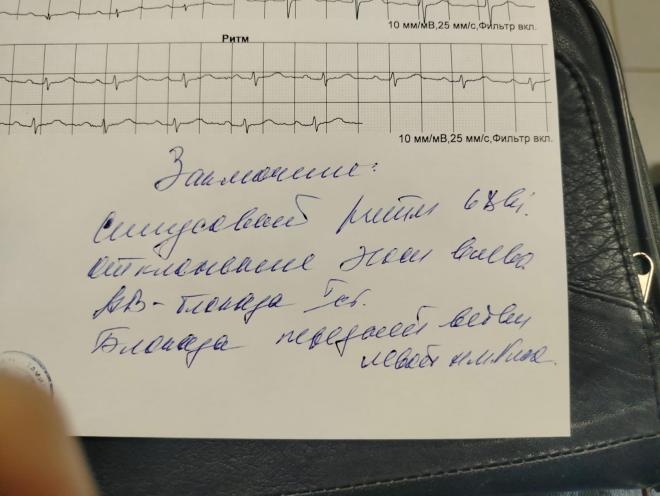 10 мм/мВ,25 мм/с,Фильтр вкл.
Ритм
10 мм/мВ,25 мм/с,Фильтр вкл.
Заключение:
синусовый ритм
отклонение эоси влево
АВ-блокада I ст.
Блокада передней ветви
левой н.п.Гиса.